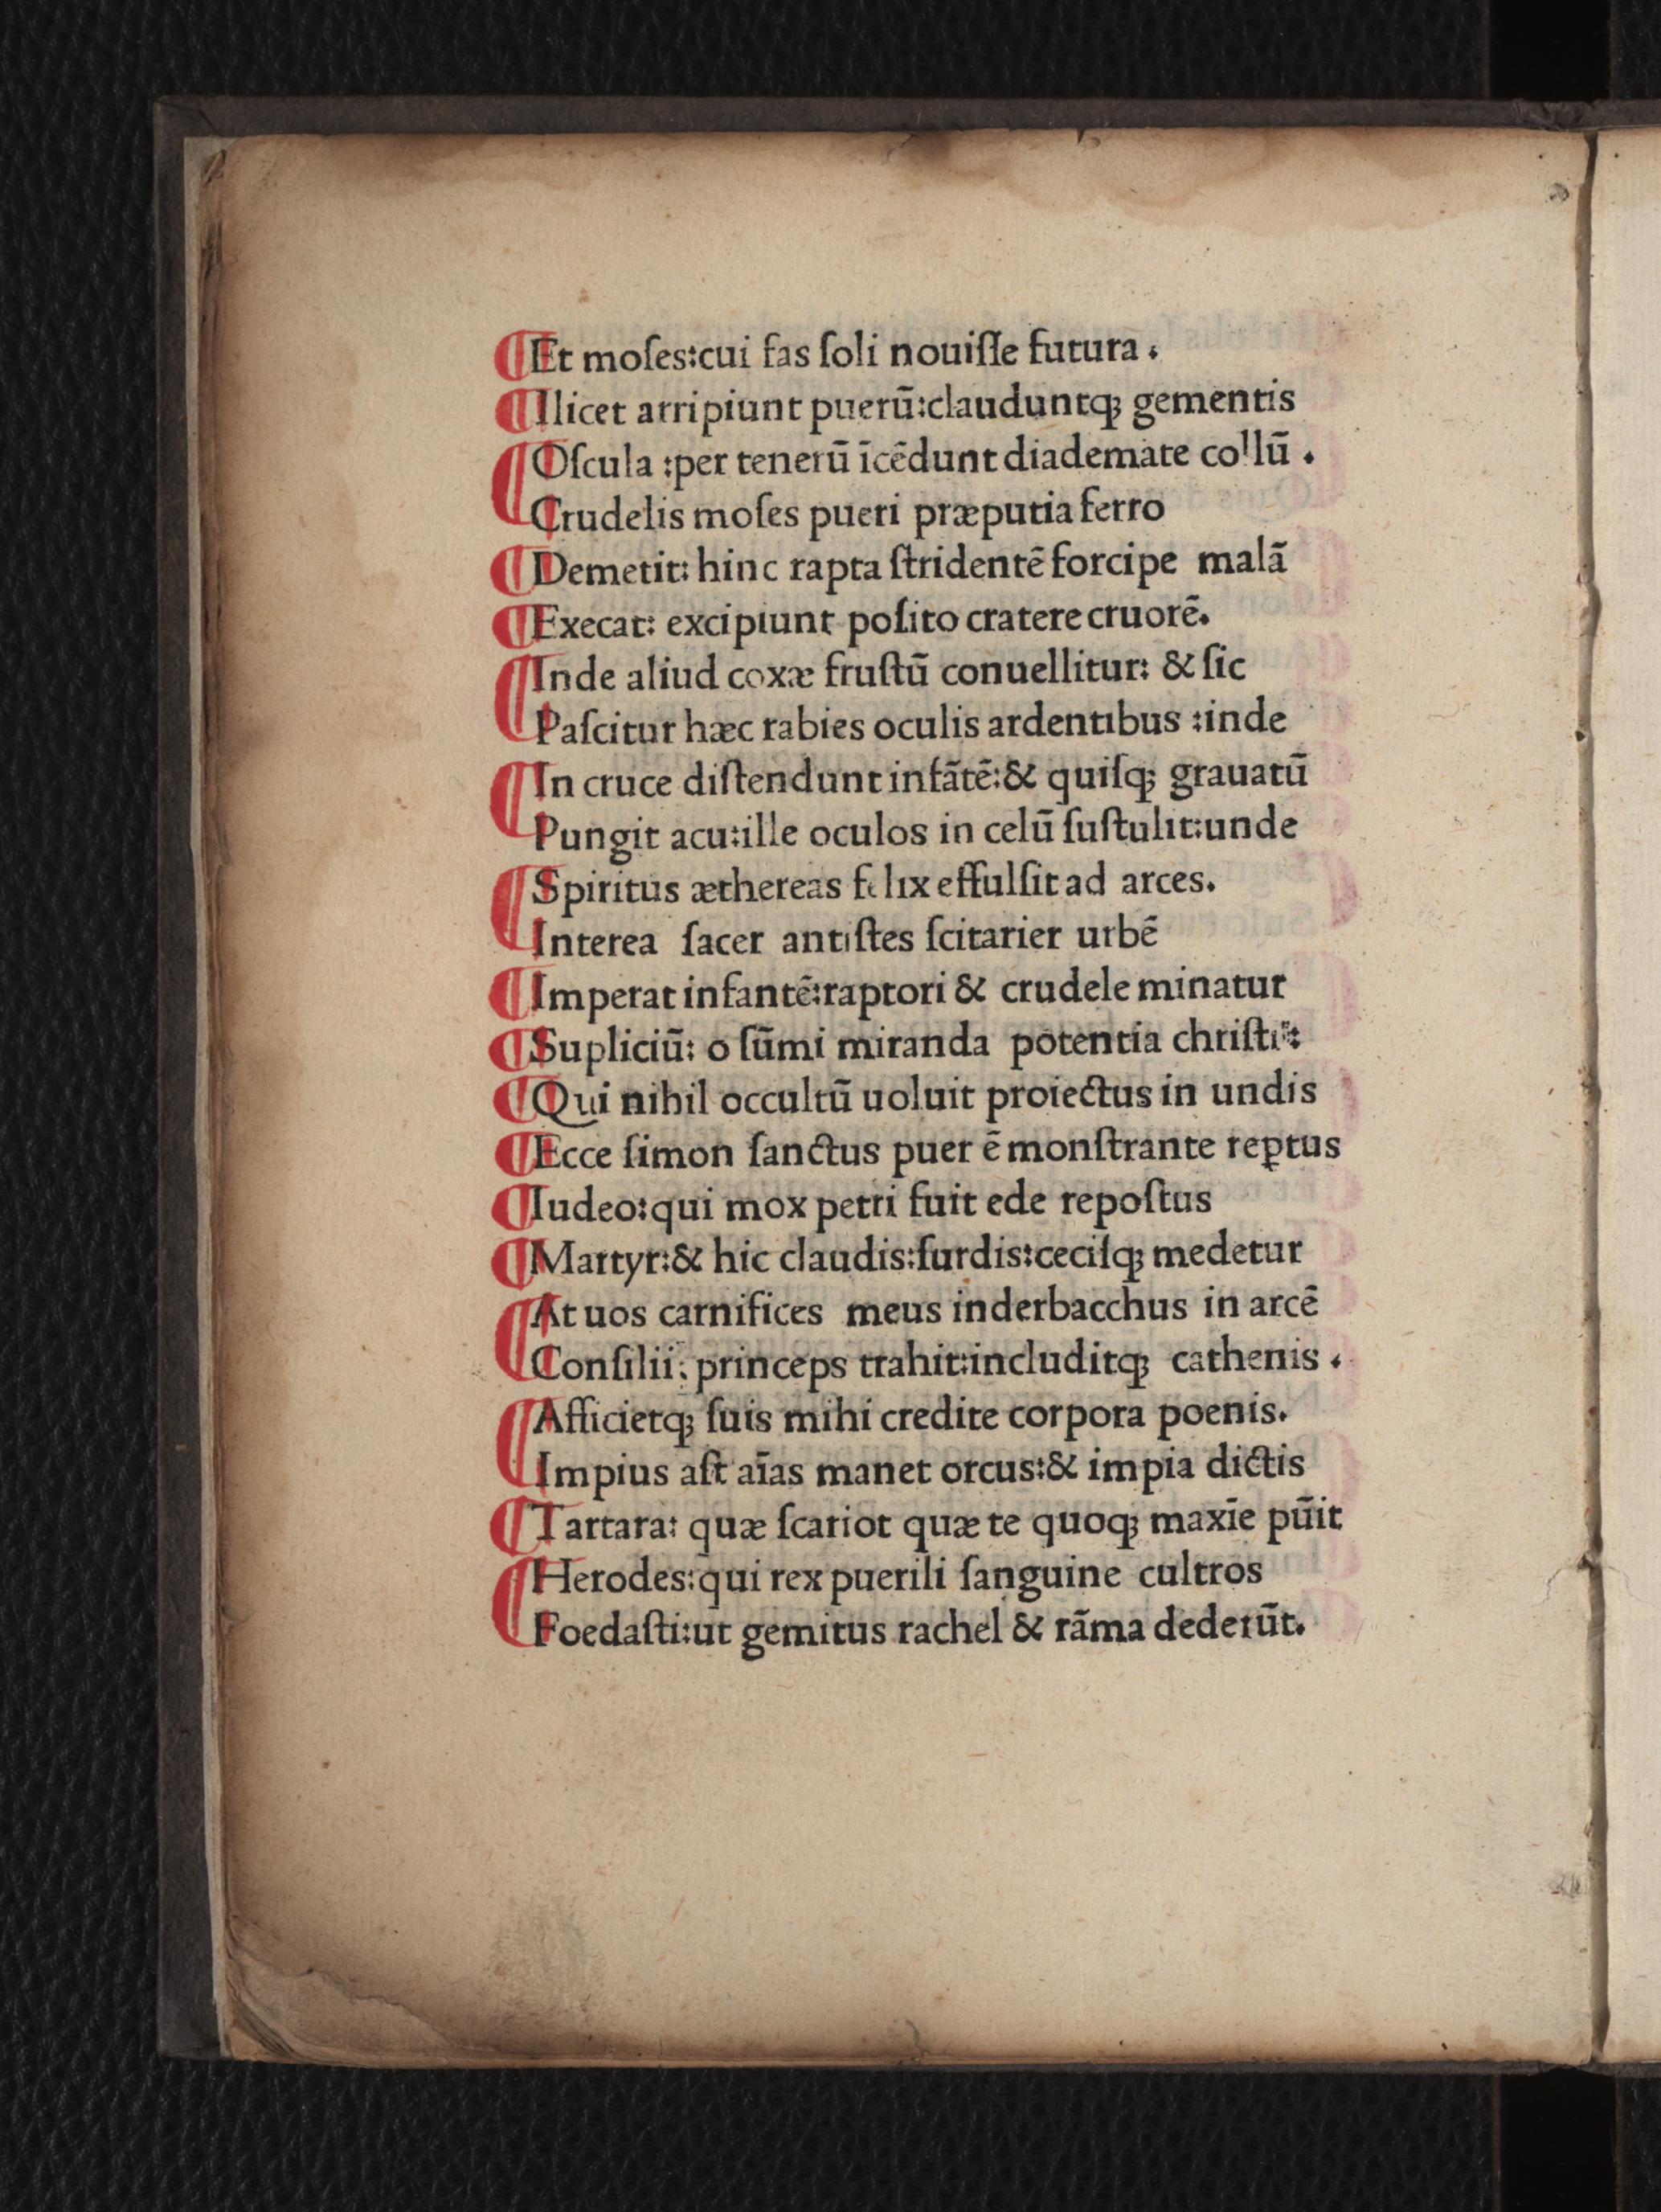 Et moſes:cui fas ſoli nouiſſe futura.
Ilicet arripiunt puerū:clauduntqꝫ gementis
Oſcula :per tenerū īcēdunt diademate collū.
Crudelis moſes pueri præputia ferro
Demetit: hinc rapta ſtridentē forcipe malā
Execat: excipiunt poſito cratere cruorē.
Inde aliud coxæ fruſtū conuellitur: & ſic
Paſcitur hæc rabies oculis ardentibus :inde
In cruce diſtendunt infātē:& quiſqꝫ grauatū
Pungit acu:ille oculos in celū ſuſtulit:unde
Spiritus æthereas felix effulſit ad arces.
Interea ſacer antiſtes ſcitarier urbē
Imperat infantē:raptori & crudele minatur
Supliciū: o ſūmi miranda potentia chriſti:
Qui nihil occultū uoluit proiectus in undis
Ecce ſimon ſanctus puer ē monſtrante reꝑtus
Iudeo:qui mox petri fuit ede repoſtus
Martyr:& hic claudis:ſurdis:ceciſqꝫ medetur
At uos carnifices meus inderbacchus in arcē
Conſilii: princeps trahit:includitqꝫ cathenis.
Afficietqꝫ ſuis mihi credite corpora poenis.
Impius aſt aīas manet orcus:& impia dictis
Tartara: quæ ſcariot quæ te quoqꝫ maxīe pūit
Herodes:qui rex puerili ſanguine cultros
Foedaſti:ut gemitus rachel & rāma dederūt.